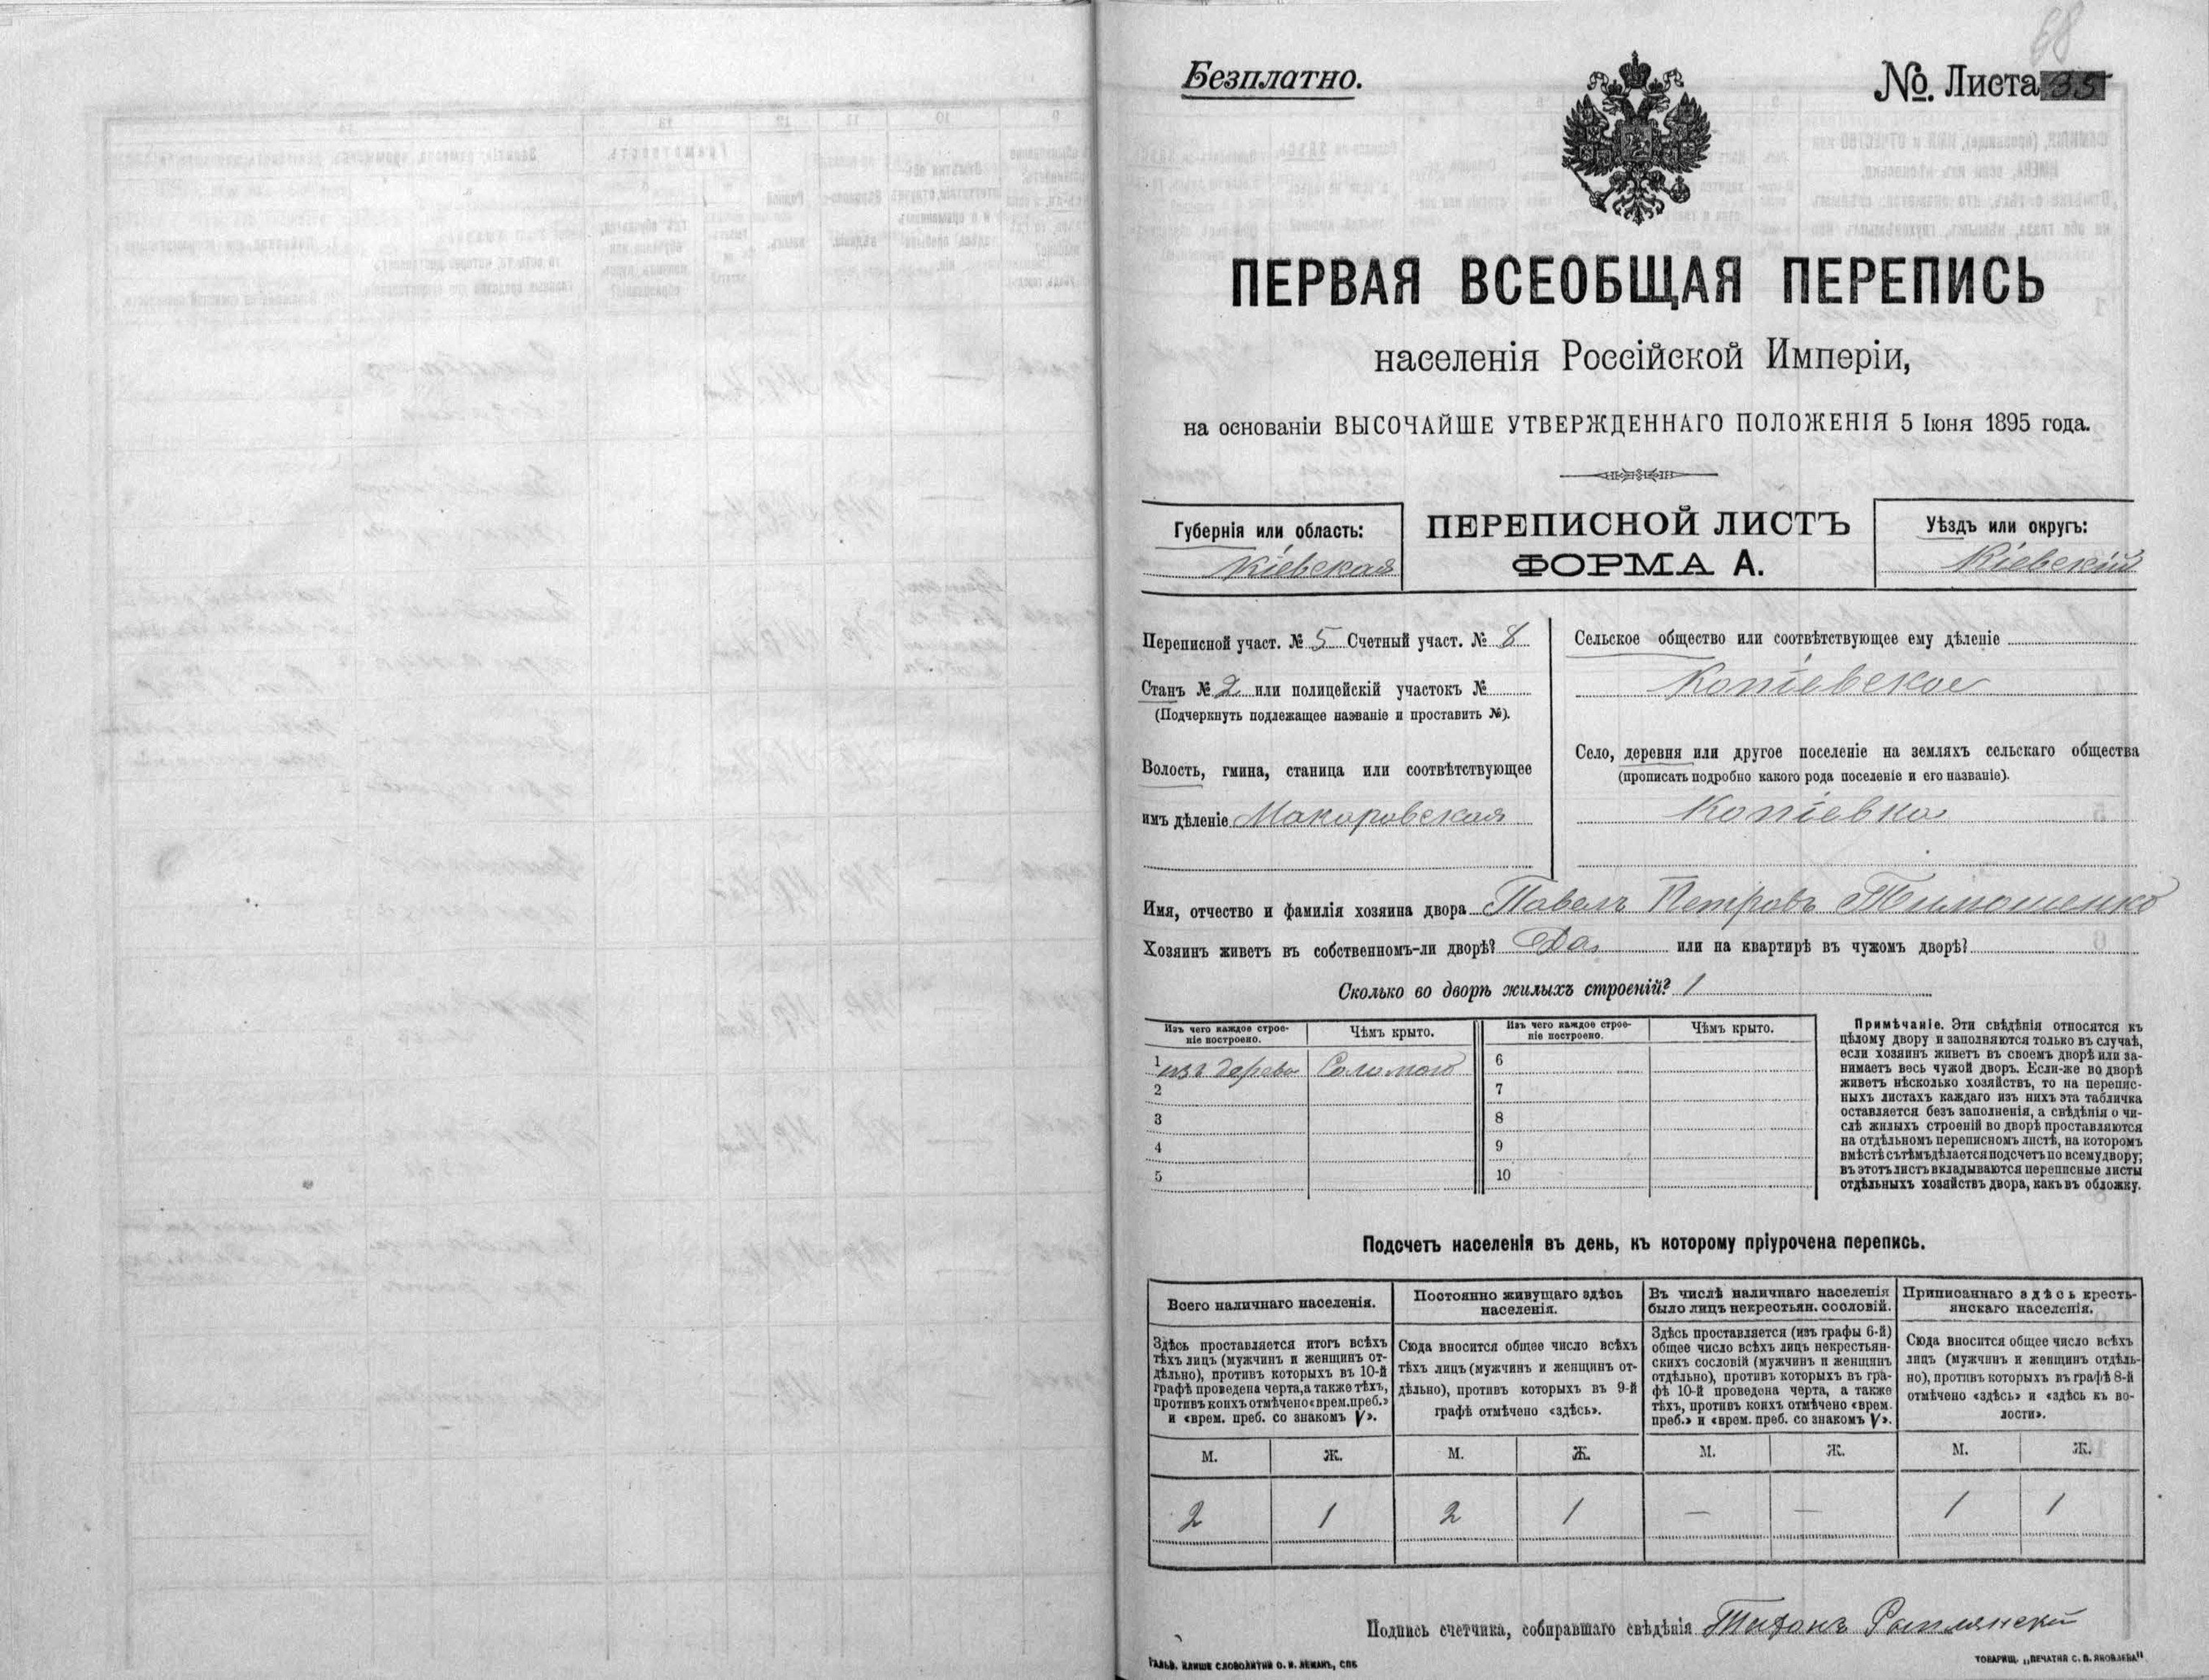 68
Безплатно.
№. Листа 35
ПЕРВАЯ ВСЕОБЩАЯ ПЕРЕПИСЬ
населенія Россійской Имперіи,
на основаніи ВЫСОЧАЙШЕ УТВЕРЖДЕННАГО ПОЛОЖЕНІЯ 5 Іюня 1895 года.
Губернія или область:
Кіевская
ПЕРЕПИСНОЙ ЛИСТЪ
ФОРМА А.
Уѣздъ или округъ:
Кіевскій
Переписной участ. № 5 Счетный участ. № 8
Станъ № 2 или полицейскій участокъ №
(Подчеркнуть подлежащее названіе и проставить №).
Волость, гмина, станица или соотвѣтствующее
имъ дѣленіе Макаровская
Сельское общество или соотвѣтствующее ему дѣленіе
Копіевское
Село, деревня или другое поселеніе на земляхъ сельскаго общества
(прописать подробно какого рода поселеніе и его названіе).
Копіевка
Имя, отчество и фамилія хозяина двора Павелъ Петровъ Тимошенко
Хозяинъ живетъ въ собственномъ-ли дворѣ? Да или на квартирѣ въ чужомъ дворѣ?
Сколько во дворѣ жилыхъ строеній? 1
Изъ чего каждое строе-
ніе построено.
Чѣмъ крыто.
Изъ чего каждое строе-
ніе построено.
Чѣмъ крыто.
1 изъ дерева Соломою 6
2 7
3 8
4 9
5 10
Примѣчаніе. Эти свѣдѣнія относятся къ
цѣлому двору и заполняются только въ случаѣ,
если хозяинъ живетъ въ своемъ дворѣ или за-
нимаетъ весь чужой дворъ. Если-же во дворѣ
живетъ нѣсколько хозяйствъ, то на перепис-
ныхъ листахъ каждаго изъ нихъ эта табличка
оставляется безъ заполненія, а свѣдѣнія о чи-
слѣ жилыхъ строеній во дворѣ проставляются
на отдѣльномъ переписномъ листѣ, на которомъ
вмѣстѣ съ тѣмъ дѣлается подсчетъ по всему двору;
въ этотъ листъ вкладываются переписные листы
отдѣльныхъ хозяйствъ двора, какъ въ обложку.
Подсчетъ населенія въ день, къ которому пріурочена перепись.
Всего наличнаго населенія.
Постоянно живущаго здѣсь
населенія.
Въ числѣ наличнаго населенія
было лицъ некрестьян. сословій.
Приписаннаго здѣсь кресть-
янскаго населенія.
Здѣсь проставляется итогъ всѣхъ
тѣхъ лицъ (мужчинъ и женщинъ от-
дѣльно), противъ которыхъ въ 10-й
графѣ проведена черта, а также тѣхъ,
противъ коихъ отмѣчено «врем. преб.»
и «врем. преб. со знакомъ V».
Сюда вносится общее число всѣхъ
тѣхъ лицъ (мужчинъ и женщинъ от-
дѣльно), противъ которыхъ въ 9-й
графѣ отмѣчено «здѣсь».
Здѣсь проставляется (изъ графы 6-й)
общее число всѣхъ лицъ некрестьян-
скихъ сословій (мужчинъ и женщинъ
отдѣльно), противъ которыхъ въ гра-
фѣ 10-й проведена черта, а также
тѣхъ, противъ коихъ отмѣчено «врем.
преб.» и «врем. преб. со знакомъ V».
Сюда вносится общее число всѣхъ
лицъ (мужчинъ и женщинъ отдѣль-
но), противъ которыхъ въ графѣ 8-й
отмѣчено «здѣсь» и «здѣсь къ во-
лости».
М. Ж. М. Ж. М. Ж. М. Ж.
2 1 2 1 — — 1 1
Подпись счетчика, собиравшаго свѣдѣнія Тихонъ
ГАЛЬВ. КЛИШЕ СЛОВОЛИТНИ О. И. ЛЕМАНЪ, СПБ
ТОВАРИЩ. „ПЕЧАТНЯ С. П. ЯКОВЛЕВА"